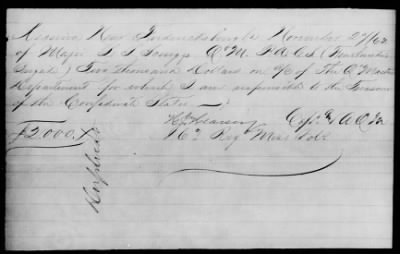 Received Near Fredericksburg Va November 27/62
of Major L. L. Scruggs Q.M. P.A.C.S. (Featherston
Brigade) Two Thousand Dollars on a/c of The Qr Master
Department for which I am responsible to the Treasury
of the Confederate States —
$2,000.
Capt & A.Q.M.
16th Reg Miss Vols